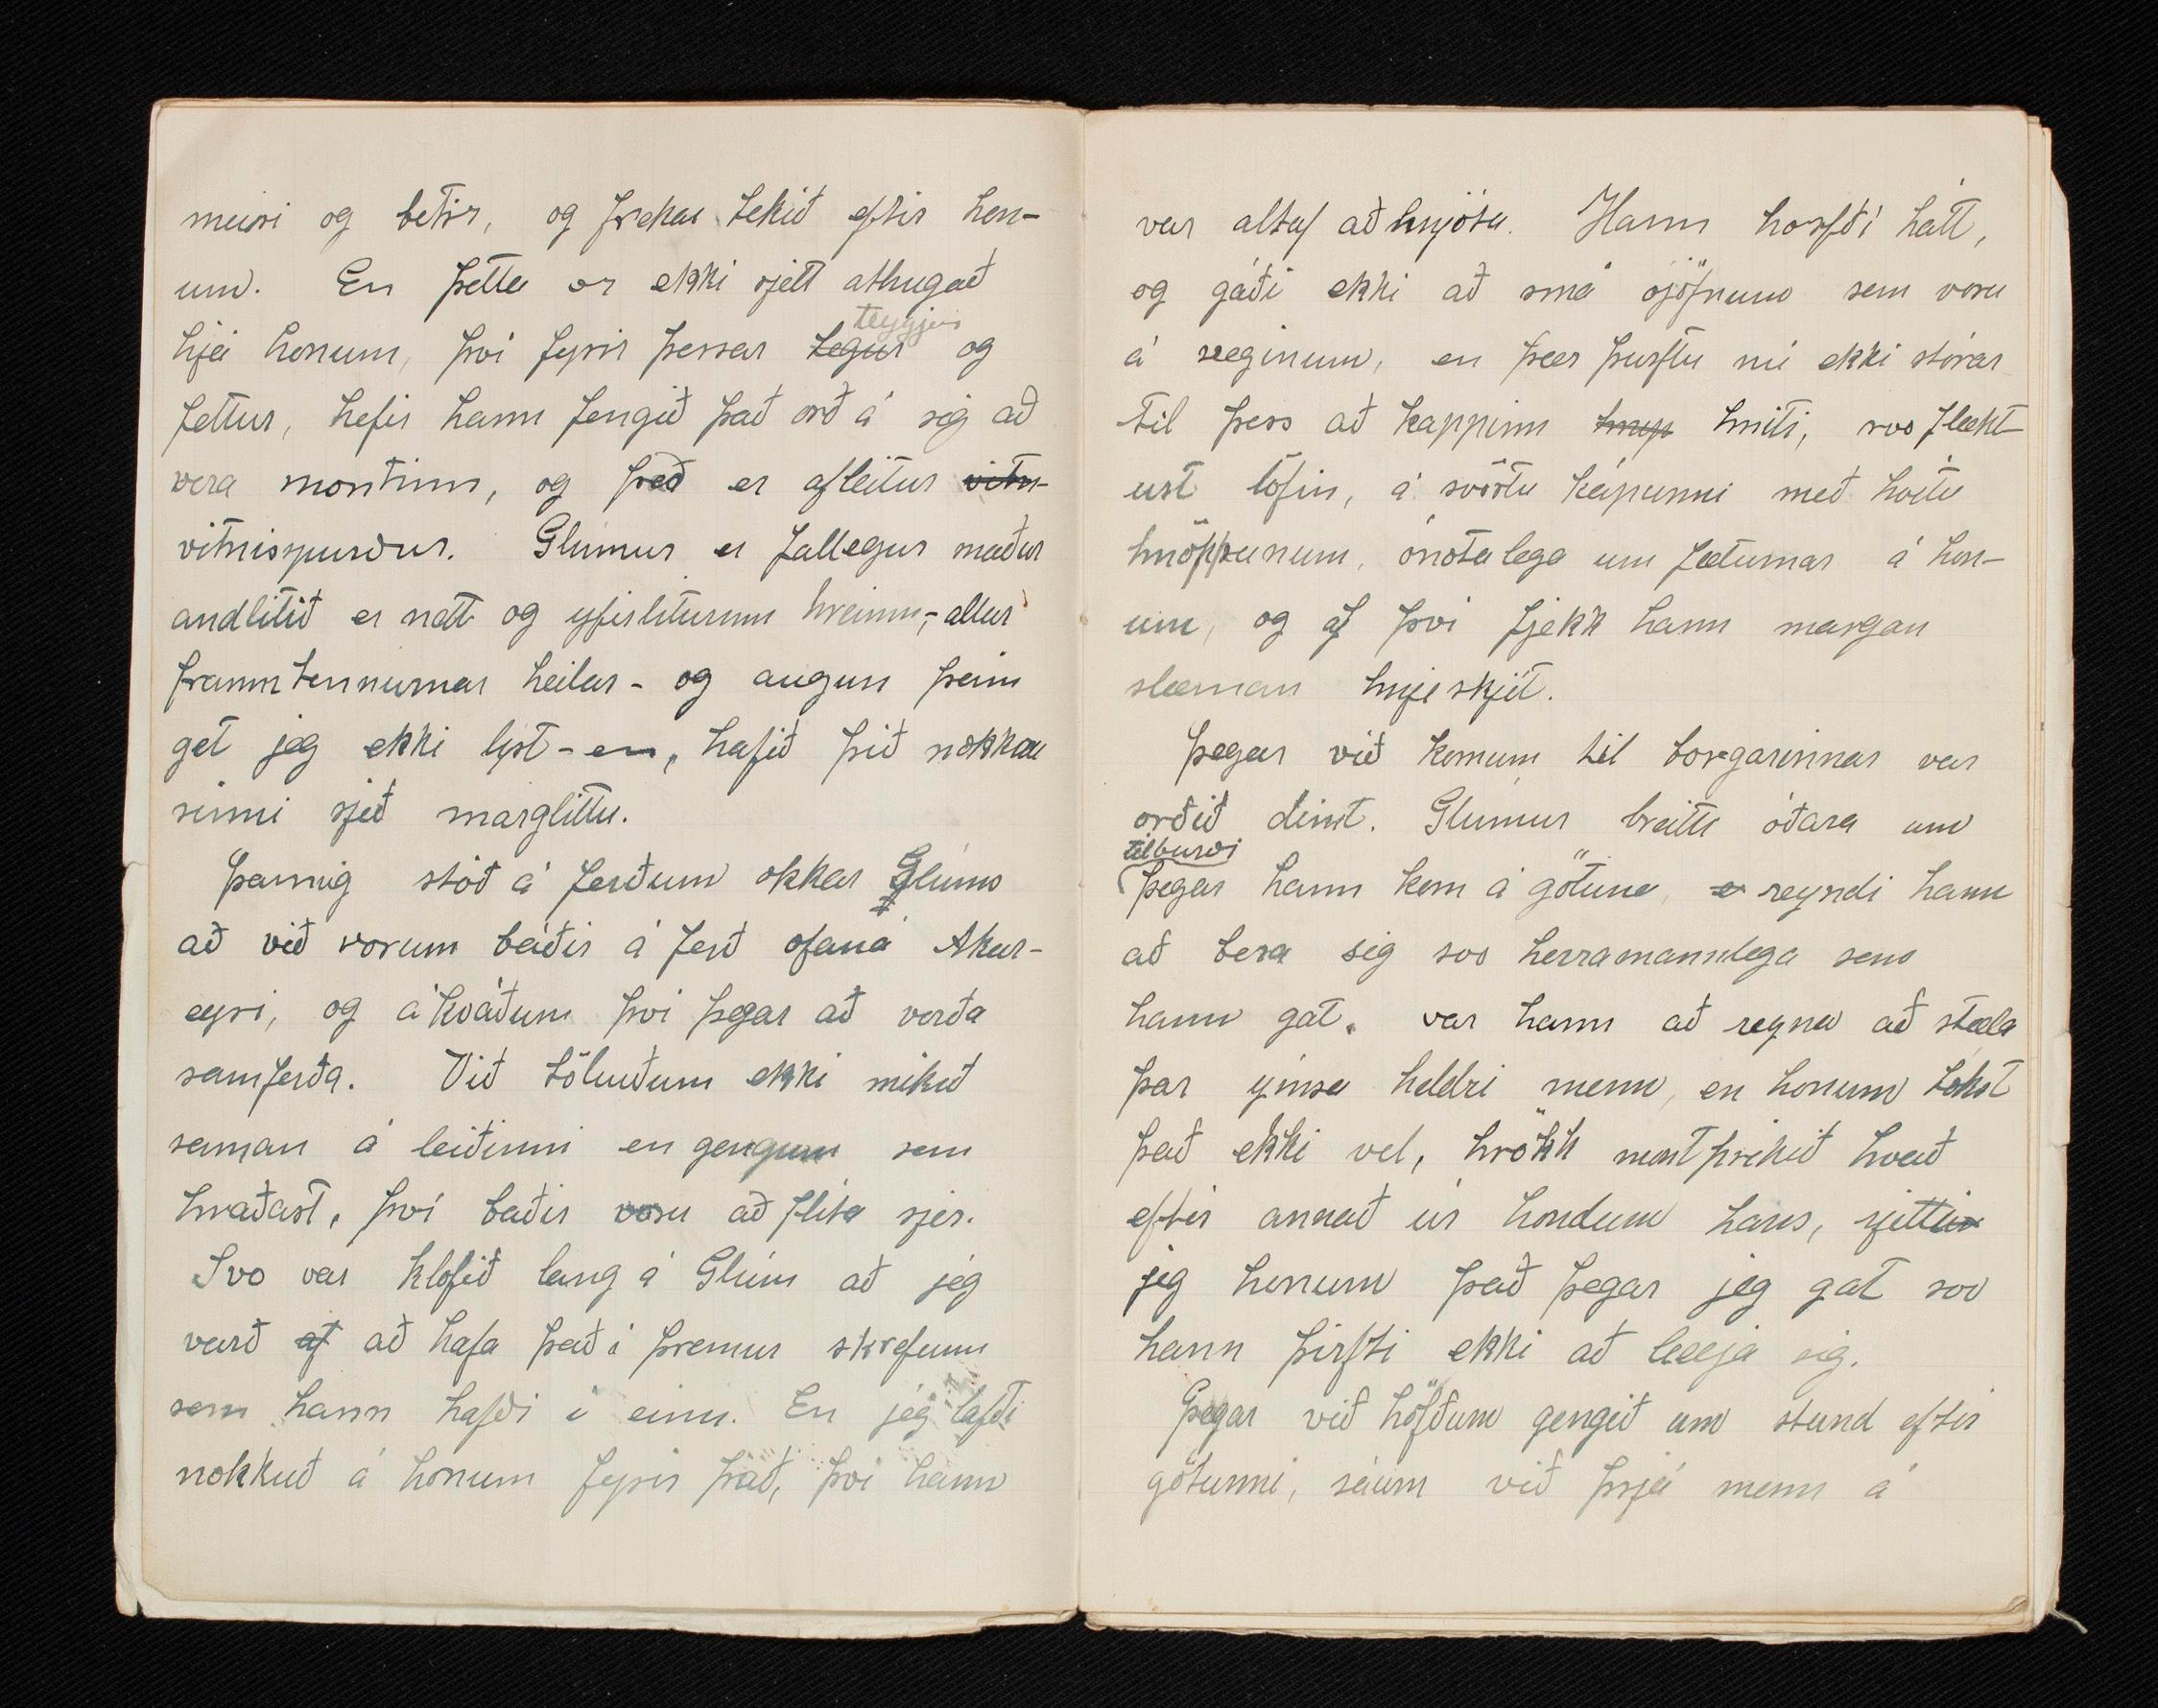 meiri og betir, og frekar tekið eftir hon-
um. En þetta er ekki rjett athugað
teygjur
hjá honum, því fyrir þessar tegur og
fettur, hefir hann fengið það orð á sig að
vera montinn, og það er afleitur vitn-
vitnispurdur. Glúmur er fallegur maður
andlitið er nett og yfirliturinn hreinn,- allar
framm tennurnar heilar - og augun þeim
get jeg ekki lýst - en, hafið þið nokkau
sinni sjeð marglittu.
Þannig stóð á ferðum okkar Glúms
að við vorum báðir á ferð ofaná Akur-
eyri, og ákváðum því þegar að verða
samferða. Við töluðum ekki mikið
saman á leiðinni en gengum sem
hraðast, því báðir voru að flíta sjer.
Svo var klofið lang á Glúm að jég
varð af að hafa það í þremur skrefum
sem hann hafði í einu. En jég hafði
nokkuð á honum fyrir það, því hann
var altaf að hnjóta. Hann horfði hátt,
og gáði ekki að smá ójöfnum sem voru
á veginum, en þær þurftu nú ekki stórar
til þess að kappinn hnyt hniti, svo flækt-
ust löfin, á svörtu kápunni með hvítu
hnöppunum, ónotalega um fæturnar á hon-
um, og af því fjekk hann margan
slæman hnjeskjit.
Þegar við komum til borgarinnar var
orðið dimt. Glúmur breitti óðara um
tilburdi
Þegar hann kom á götuna, e reyndi hann
að bera sig svo herramannlega sem
hann gat. var hann að reyna að stæla
þar ýmsa heldri menn, en honum tókst
það ekki vel, hrökk montprikið hvað
eftir annað úr höndum hans, rjettir
jeg honum það þegar jeg gat svo
hann þirfti ekki að beegja sig.
Þegar við höfðum gengið um stund eftir
götunni, sáum við þrjá menn á